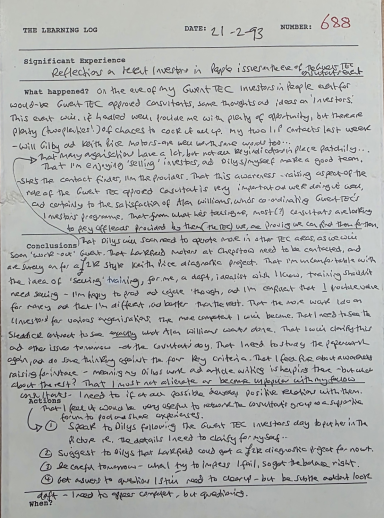 THE LEARNING LOG DATE: 21-2-93 NUMBER: 688
Significant Experience
Reflections on recent Investors in People issues on the eve of the Gwent TEC
consultants event
What happened? On the eve of my Gwent TEC Investors in People event for
would-be Gwent TEC approved consultants, some thoughts and ideas on 'Investors.'
This event will, if handled well, provide me with plenty of opportunity, but there are
plenty of chances to cock it all up. My two contacts last week
- Will Gilby and Keith Price Motors - are well worth some
That many organisations have a lot, but not all in place
That I'm enjoying 'selling' Investors, and Dilys/myself make a good team,
- she's the contact finder, I'm the provider. That this awareness-raising aspect of the
role of the Gwent TEC approved consultant is very important and we're doing it well,
and certainly to the satisfaction of Alan Williams, who's co-ordinating Gwent TEC's
Investors programme. That from what he's
to pay
Conclusions That Dilys will soon need to operate more in other TEC areas, as we will
soon 'work-out' Gwent. That Larkfield Motors at Chepstow need to be contacted, and
are surely on for a Keith Price diagnostic project. That I'm uncomfortable with
the idea of 'selling' training, for me a daft, idealist I know, training shouldn't
need selling - I'm happy to and argue though, and I'm confident that I produce value
for money and that I'm different and better than the rest. That the more work I do on
Investors for various organisations, the more competent I will become. That I need to see the
contract to see exactly what Alan Williams wants done. That I will clarify this
and other issues tomorrow - at the consultants' day. That I need to study the paperwork
again, and do some thinking against the four key criteria. That I feel fine about awareness
raising for instance - meaning my Dilys work and article writing is helping there - but what
about the rest? That I must not alienate or become unpopular with my fellow
consultants - I need to if at all possible develop positive relations with them.
Actions That I feel it would be very useful to network the consultants group as a supportive
forum to pool and share experiences.
① Speak to Dilys following the Gwent TEC Investors day to put her in the
picture re. the details I need to clarify for myself..
② Suggest to Dilys that Larkfield could get a diagnostic right for now.
③ Be careful tomorrow - what I try to impress I fail, so get the balance right.
④ Get answers to questions I still need to clear up - but be subtle and don't look
daft - I need to appear competent, but questioning.
When?